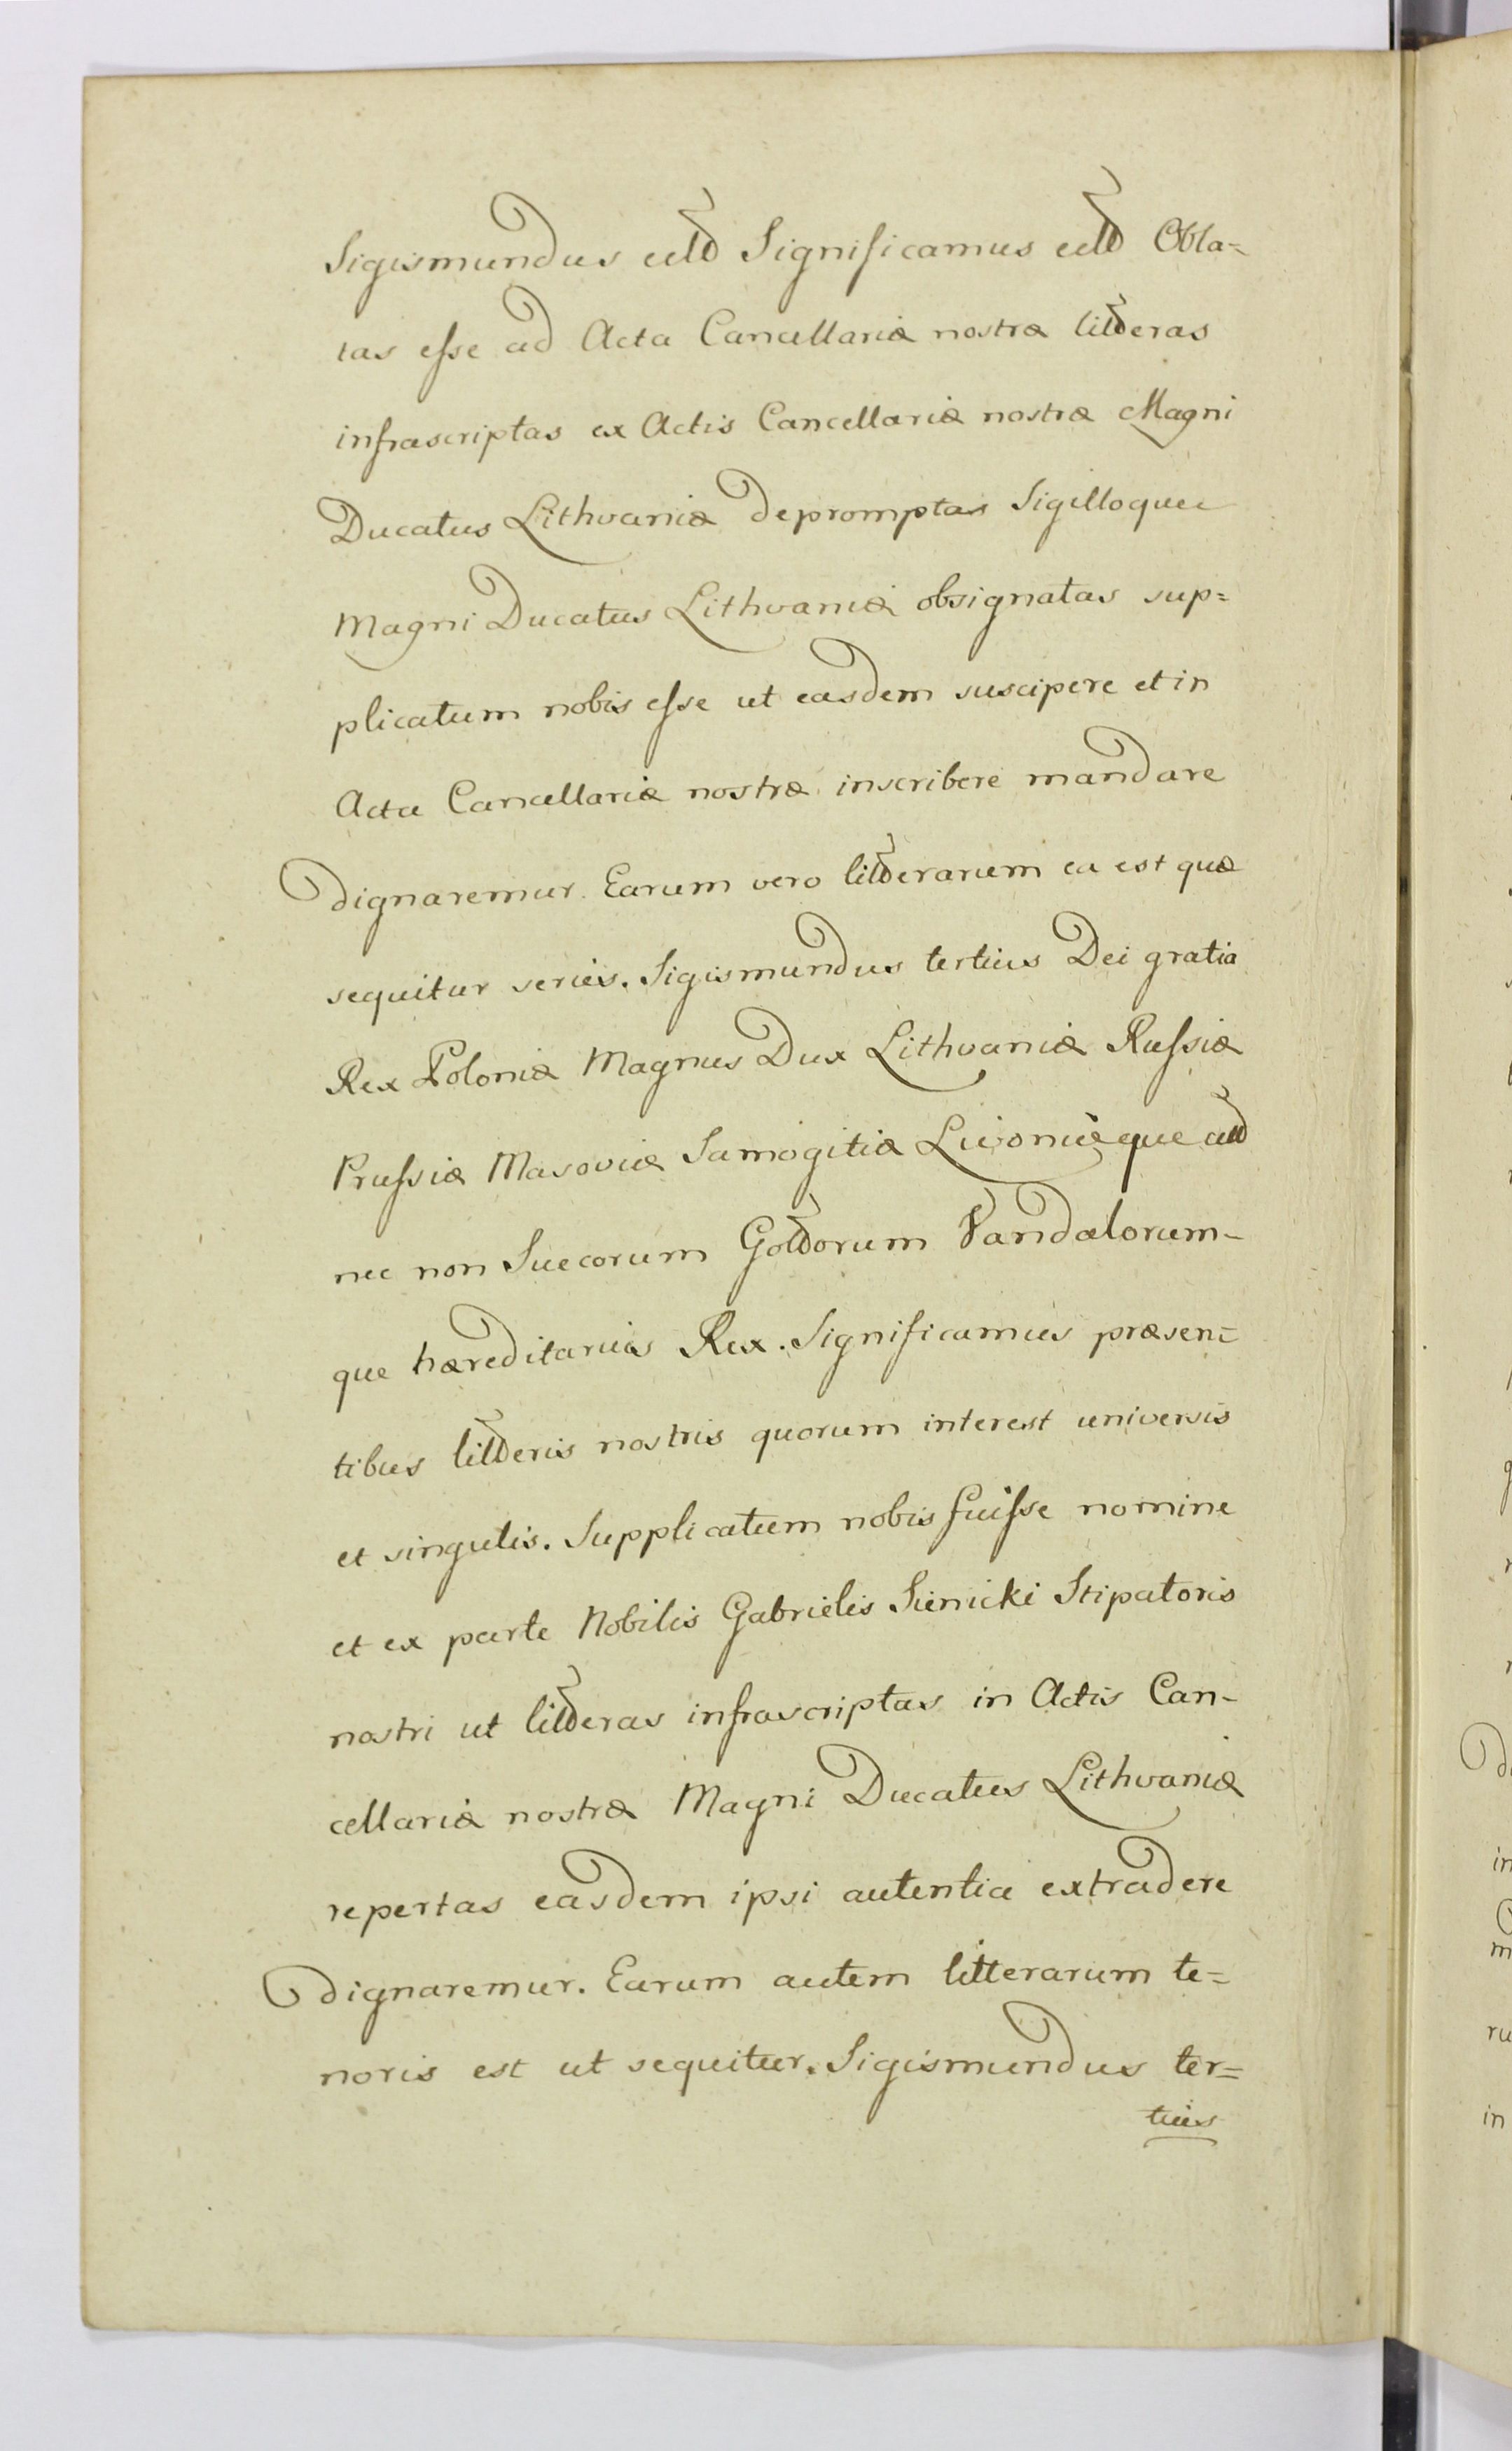 Sigismundus ettt Significamus ettt Obla=
tas esse ad Acta Cancellariæ nostræ litteras
infrascriptas ex Actis Cancellariæ nostræ Magni
Ducatus Lithvaniæ depromptas Sigilloque
Magni Ducatus Lithvaniæ obsignatas sup=
plicatum nobis esse ut easdem suscipere et in
Acta Cancellariæ nostræ inscribere mandare
dignaremur. Earum vero litterarum ea est quæ
sequitur series. Sigismundus tertius Dei gratia
Rex Poloniæ Magnus Dux Lithvaniæ Russiæ
Prussiæ Masoviæ Samogitiæ Livoniæque ettt
nec non Suecorum Gottorum Vandalorum-
que hæreditarius Rex. Significamus præsen=
tibus litteris nostris quorum interest universis
et singulis. Supplicatum nobis fuisse nomine
et ex parte Nobilis Gabrielis Sienicki Stipatoris
nostri ut litteras infrascriptas in Actis Can-
cellariæ nostræ Magni Ducatus Lithvaniæ
repertas easdem ipsi autentice extradere
dignaremur. Earum autem litterarum te=
noris est ut sequitur. Sigismundus ter=
tius